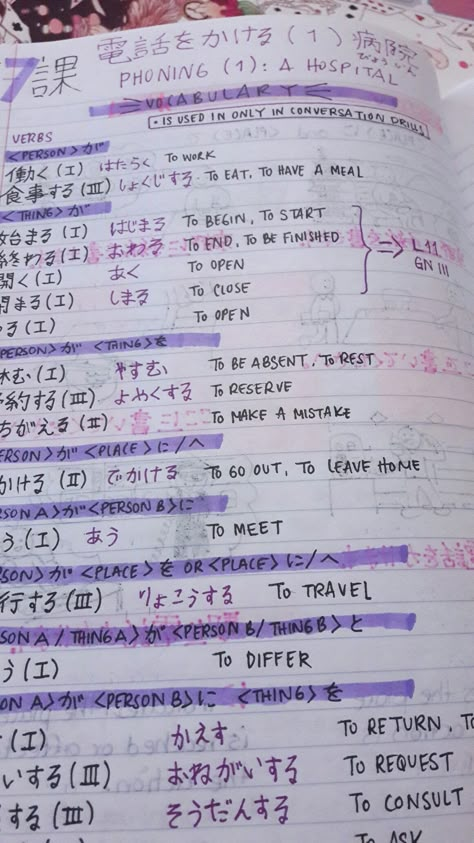 7課 電話をかける(1)病院
びょういん
PHONING (1): A HOSPITAL
VOCABULARY
• IS USED IN ONLY IN CONVERSATION DRILLS
VERBS
<PERSON>が
働く(I) はたらく TO WORK
食事する(III) しょくじする TO EAT, TO HAVE A MEAL
<THING>が
始まる(I) はじまる TO BEGIN, TO START
終わる(I) おわる TO END, TO BE FINISHED
開く(I) あく TO OPEN
閉まる(I) しまる TO CLOSE
⇒ L.11
GN III
る(I) TO OPEN
PERSON>が<THING>を
休む(I) やすむ TO BE ABSENT, TO REST
予約する(III) よやくする TO RESERVE
ちがえる(II) TO MAKE A MISTAKE
ERSON>が<PLACE>に/へ
かける(II) でかける TO GO OUT, TO LEAVE HOME
SON A>が<PERSON B>に
う(I) あう TO MEET
SON>が<PLACE>を OR <PLACE>に/へ
行する(III) りょこうする TO TRAVEL
SON A/THING A>が<PERSON B/THING B>と
う(I) TO DIFFER
ON A>が<PERSON B>に <THING>を
(I) かえす TO RETURN, T
いする(III) おねがいする TO REQUEST
する(III) そうだんする TO CONSULT
TO ASK